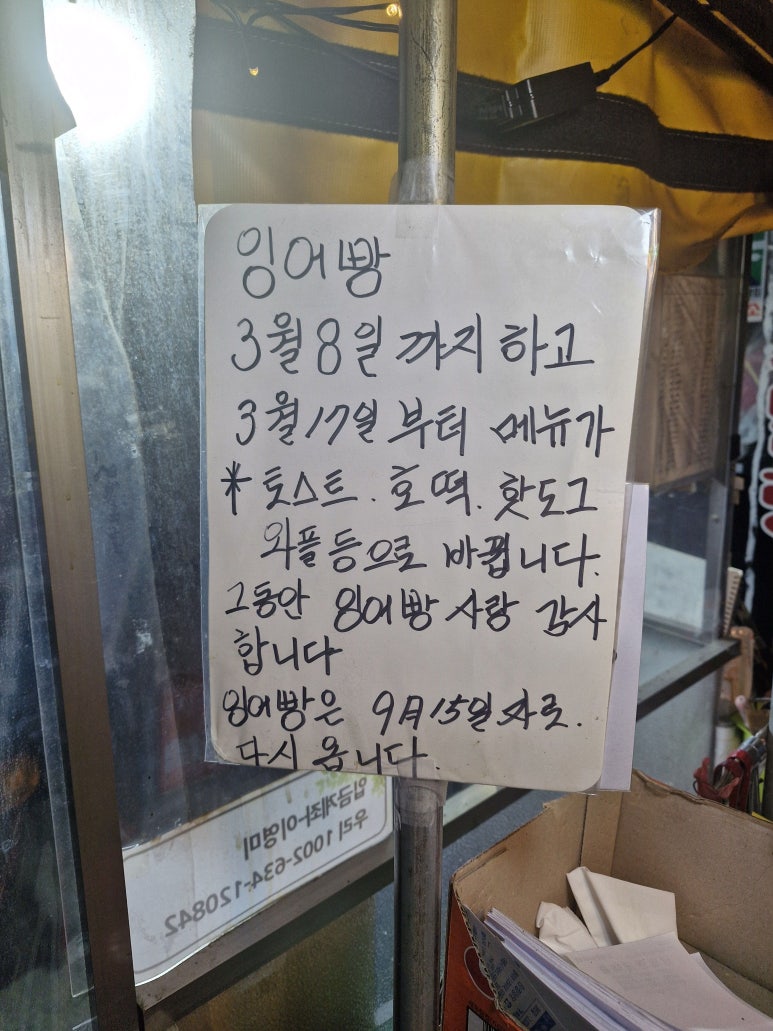 잉어빵
3월 8일 까지 하고
3월 17일 부터 메뉴가
* 토스트. 호떡. 핫도그
와플 등으로 바뀝니다.
그동안 잉어빵 사랑 감사
합니다
잉어빵은 9月 15일 자로.
다시 옵니다.
입금계좌-이영미
우리 1002-634-120842